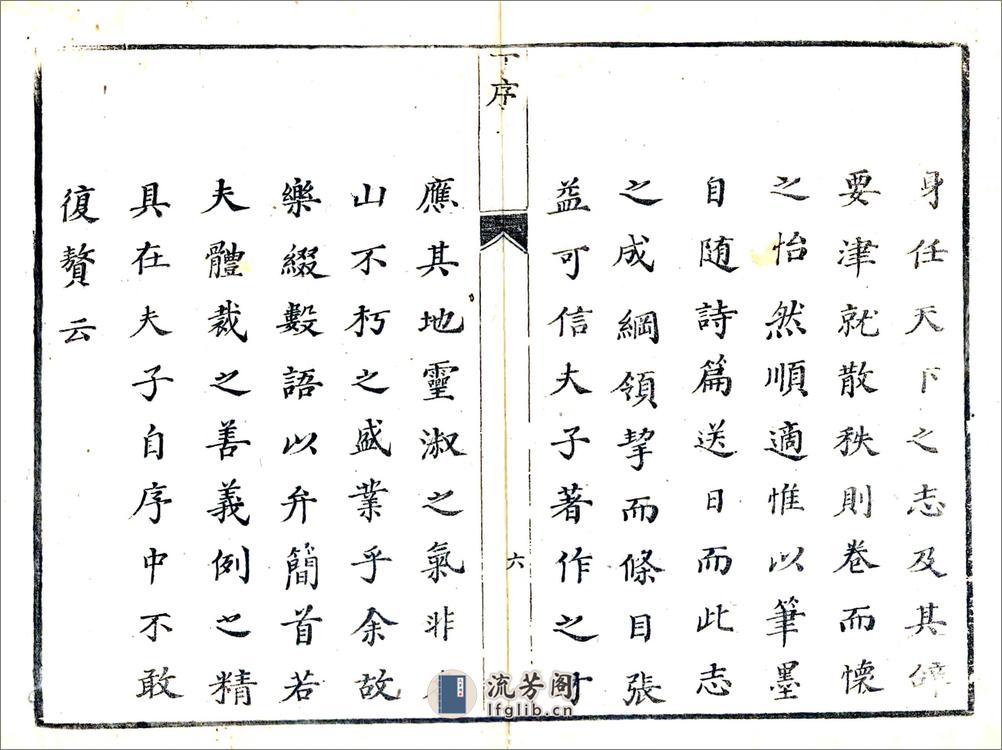 身任天下之志及其辭
要津就散秩則卷而懷
之怡然順適惟以筆墨
自随詩篇送日而此志
之成綱領挈而條目張
益可信夫子著作之
序
六
應其地靈淑之氣非
山不朽之盛業乎余故
樂綴數語以弁簡首若
夫體裁之善義例之精
具在夫子自序中不敢
復贅云
流芳阁
lfglib.cn